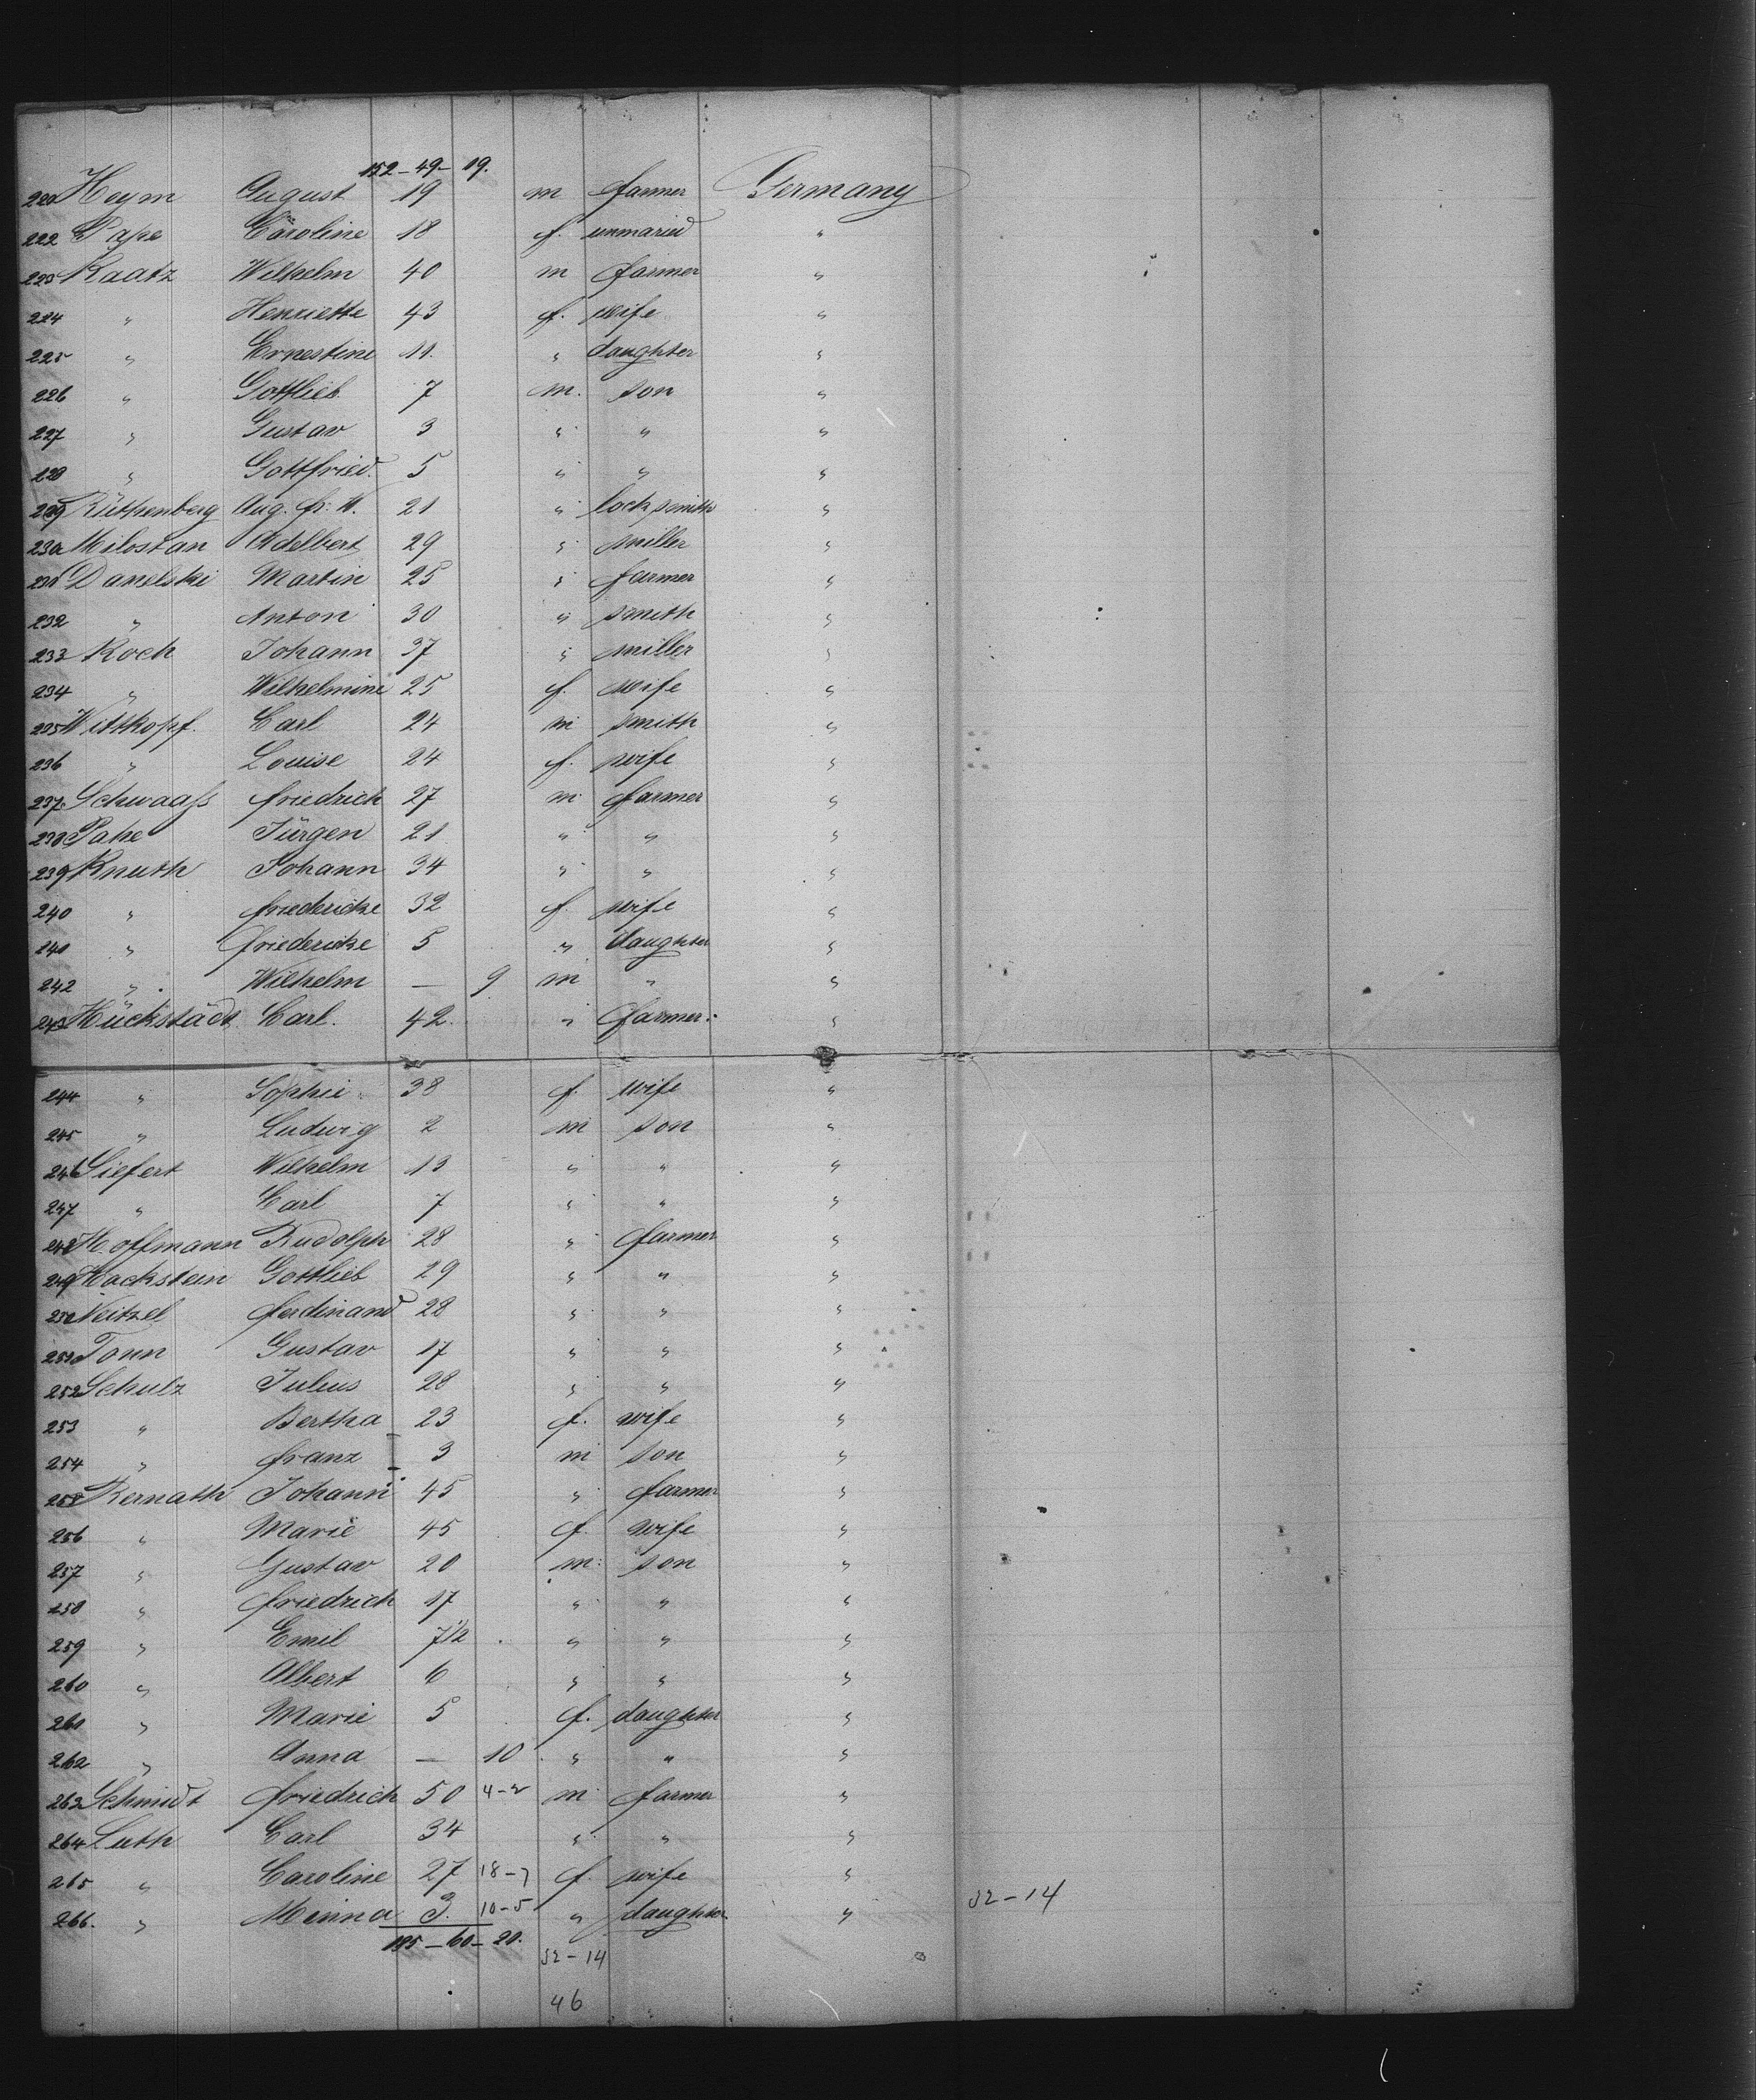 152 – 49 – 19.
221 Heym August 19 m farmer Germany
222 Pape Caroline 18 f. unmaried "
223 Kaatz Wilhelm 40 m farmer "
224 " Henriette 43 f. wife "
225 " Ernestine 11. " daughter "
226 " Gottlieb 7 m. son "
227 " Gustav 3 " " "
228 " Gottfried. 5 " " "
229 Rüthenberg Aug. fr. W. 21 " locksmith "
230 Milostan Adelbert 29 " miller "
231 Danelski Martin 25 " farmer "
232 " Anton 30 " smith "
233 Koch Johann 37 " miller "
234 " Wilhelmine 25 f. wife "
235 Wittkopf. Carl 24 m smith "
236 " Louise 24 f. wife "
237. Schwaafs friedrich 27 m farmer "
238 Pahe Jürgen 21 " " "
239 Knuth Johann 34 " " "
240 " friedericke 32 f. wife "
241 " friedericke 5 " daughter "
242 " Wilhelm — 9 m " "
243 Hückstädt Carl. 42. " farmer. "
244 " Sophie 38 f. wife "
245 " Ludwig 2 m son "
246 Siefert Wilhelm 13 " " "
247 " Carl 7 " " "
248 Hoffmann Rudolph 28 " farmer "
249 Hackstein Gottlieb 29 " " "
250 Neitzel ferdinand 28 " " "
251 Tonn Gustav 17 " " "
252 Schulz Julius 28 " " "
253 " Bertha 23 f. wife "
254 " franz 3 m son "
255 Kernath Johann 45 " farmer "
256 " Marie 45 f. wife "
257 " Gustav 20 m. son "
258 " friedrich 17 " " "
259 " Emil 7 1/2 " " "
260 " Albert 6 " " "
261 " Marie 5 f. daughter "
262 " Anna — 10 " " "
263 Schmidt friedrich 50 4–2 m farmer "
264 Luth Carl 34 " " "
265 " Caroline 27 18–7 f. wife "
266. " Minna 3. 10–5 " daughter " 32–14
185 – 60 – 20. 32–14
46